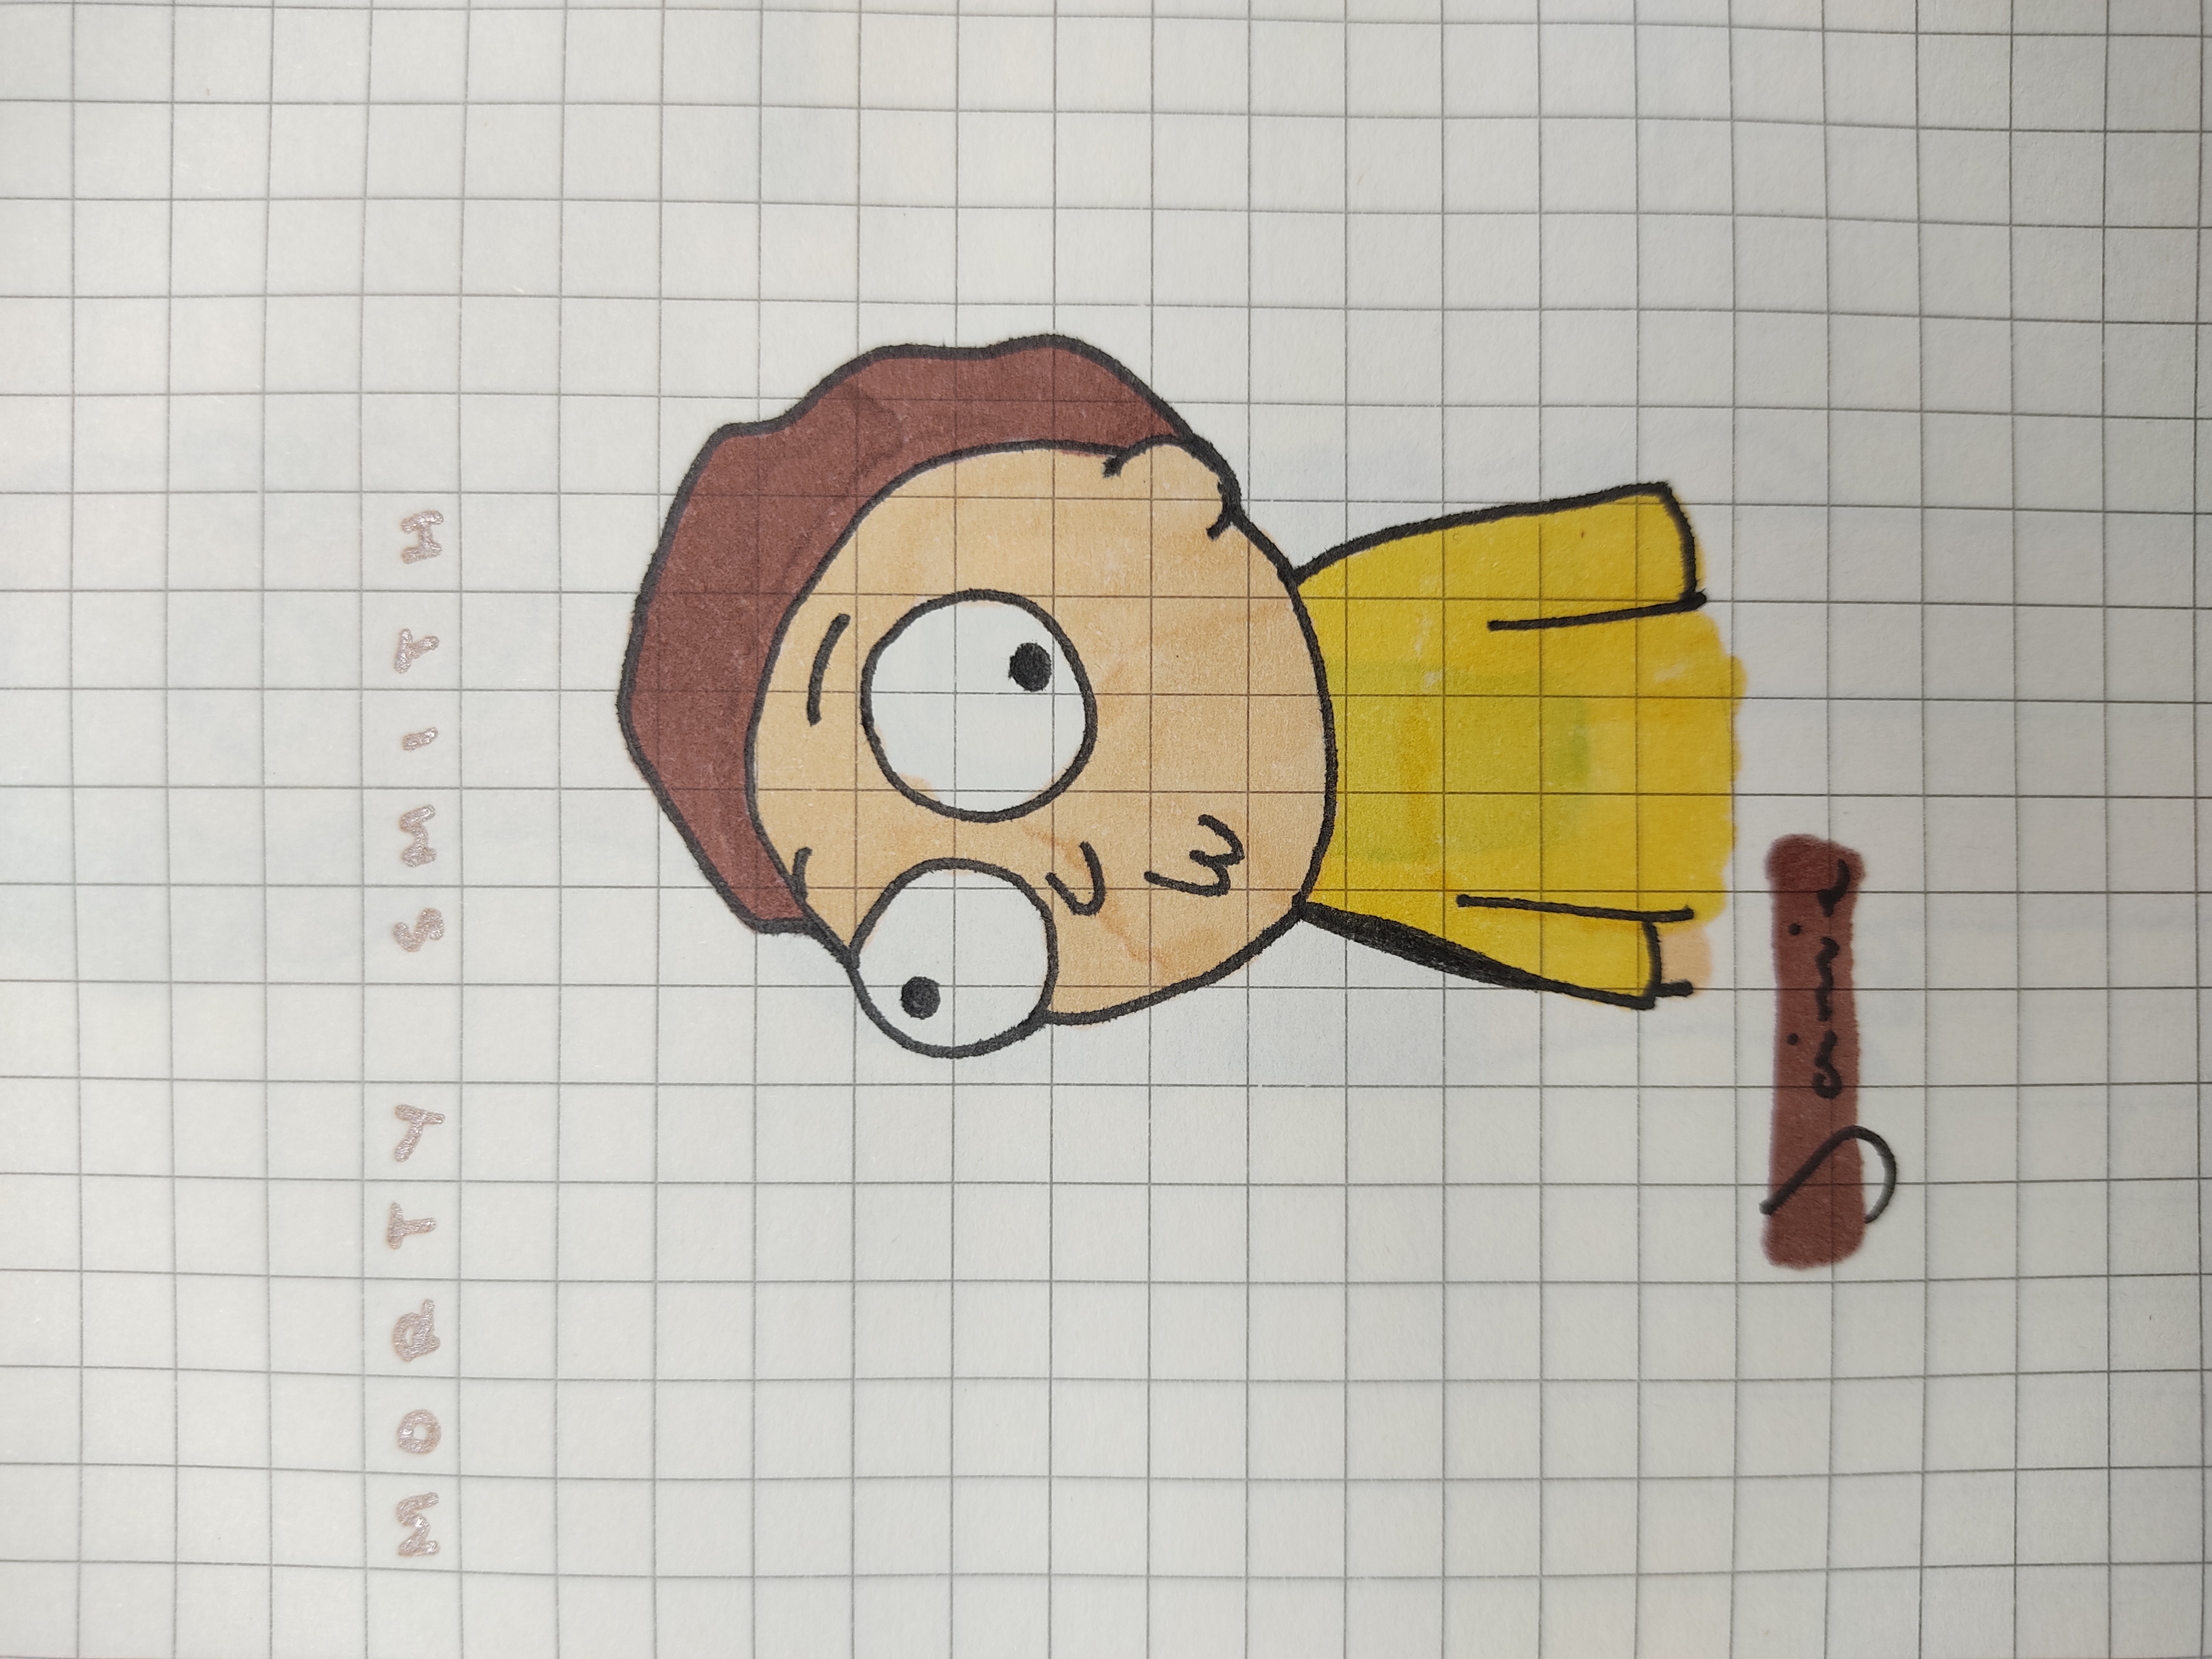 MORTY SMITH
Jaimie